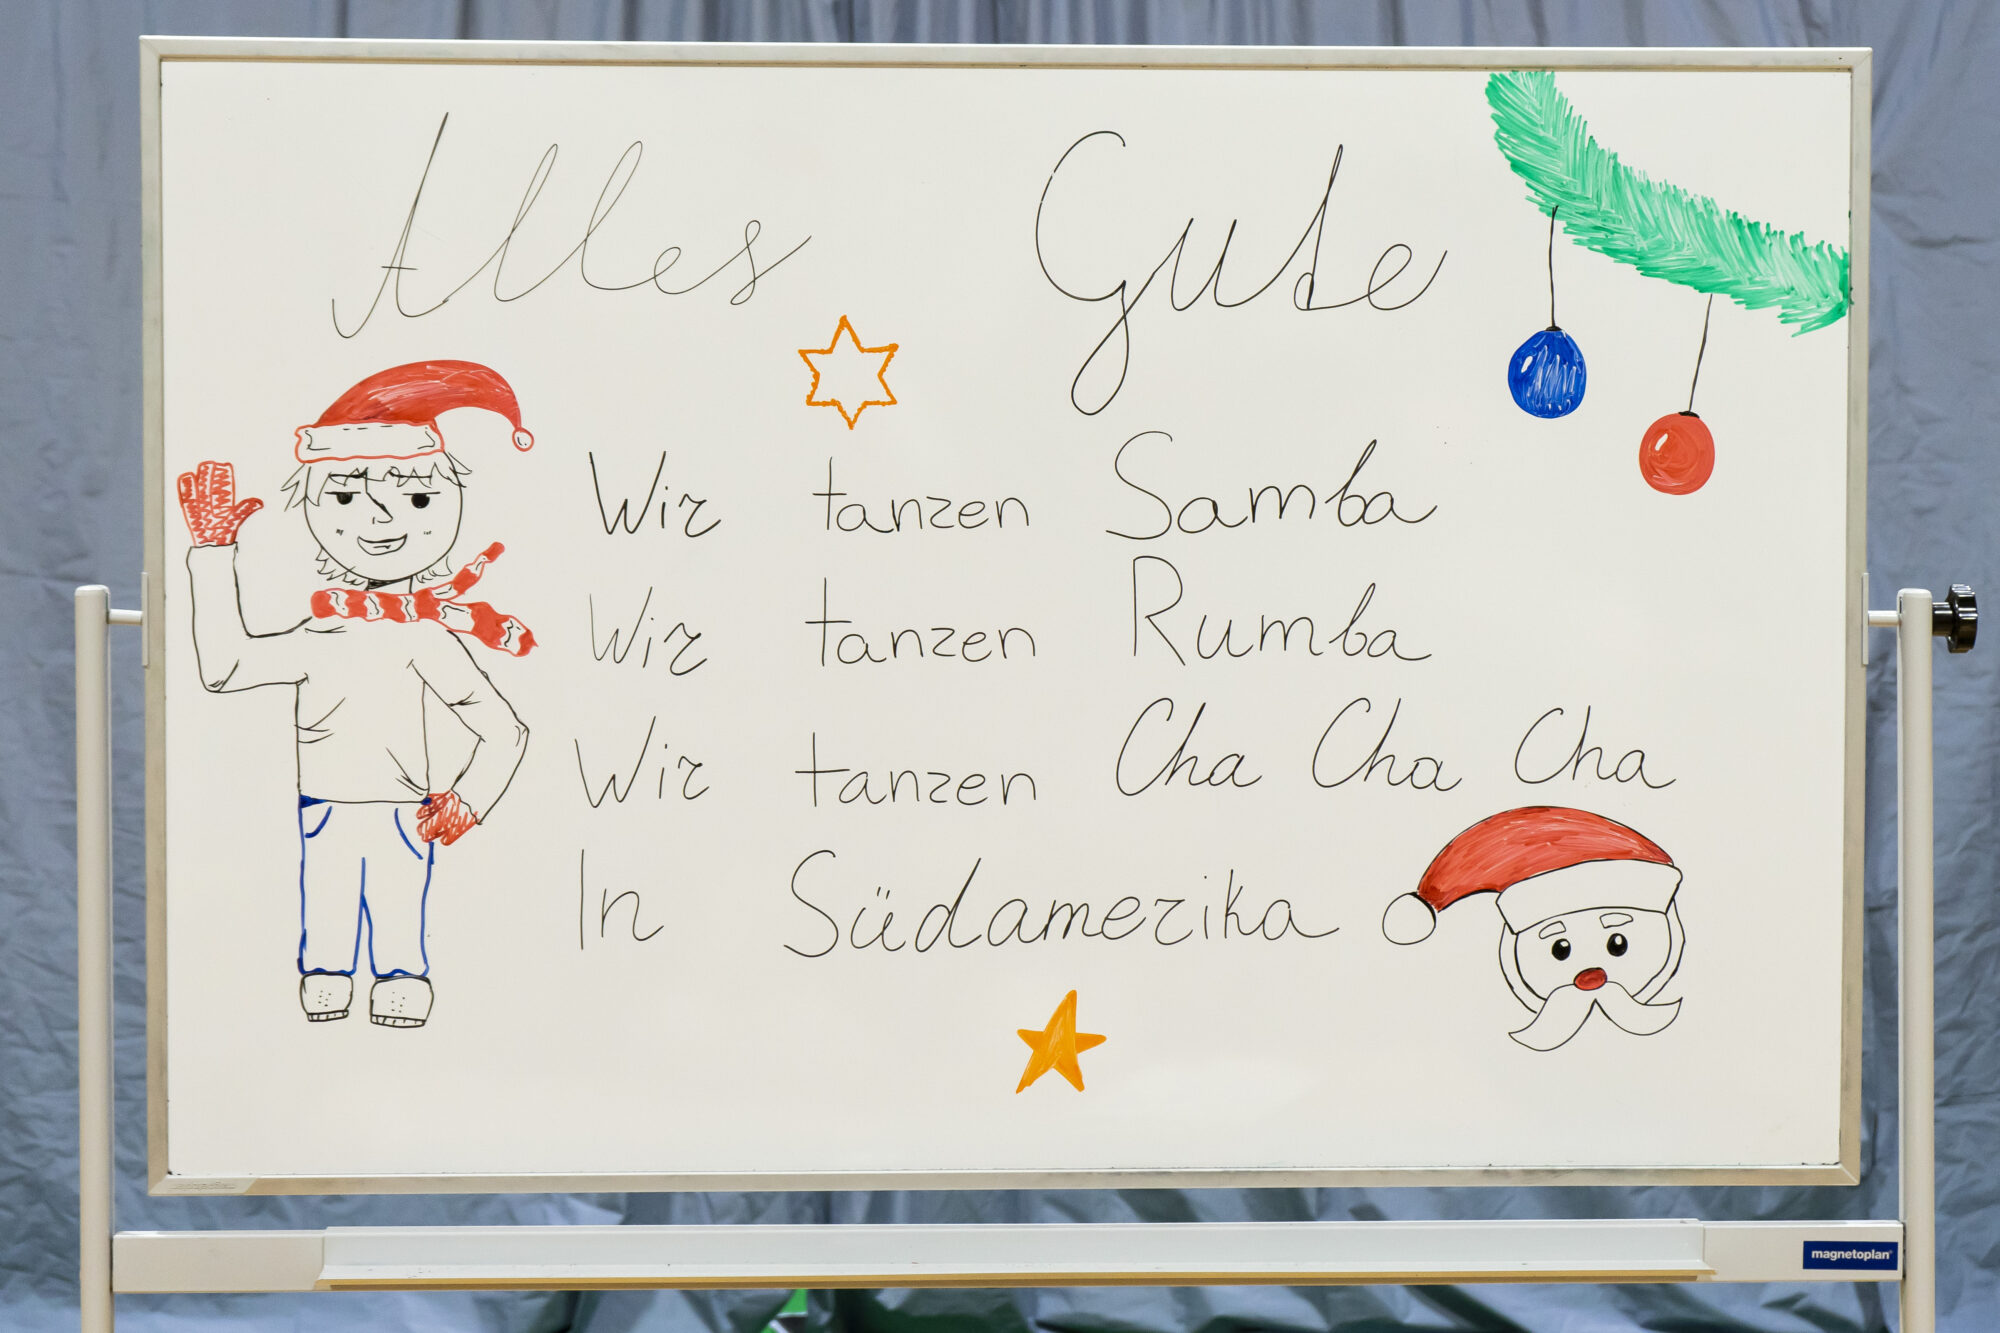 Alles Gute
Wir tanzen Samba
Wir tanzen Rumba
Wir tanzen Cha Cha Cha
In Südamerika
magnetoplan®